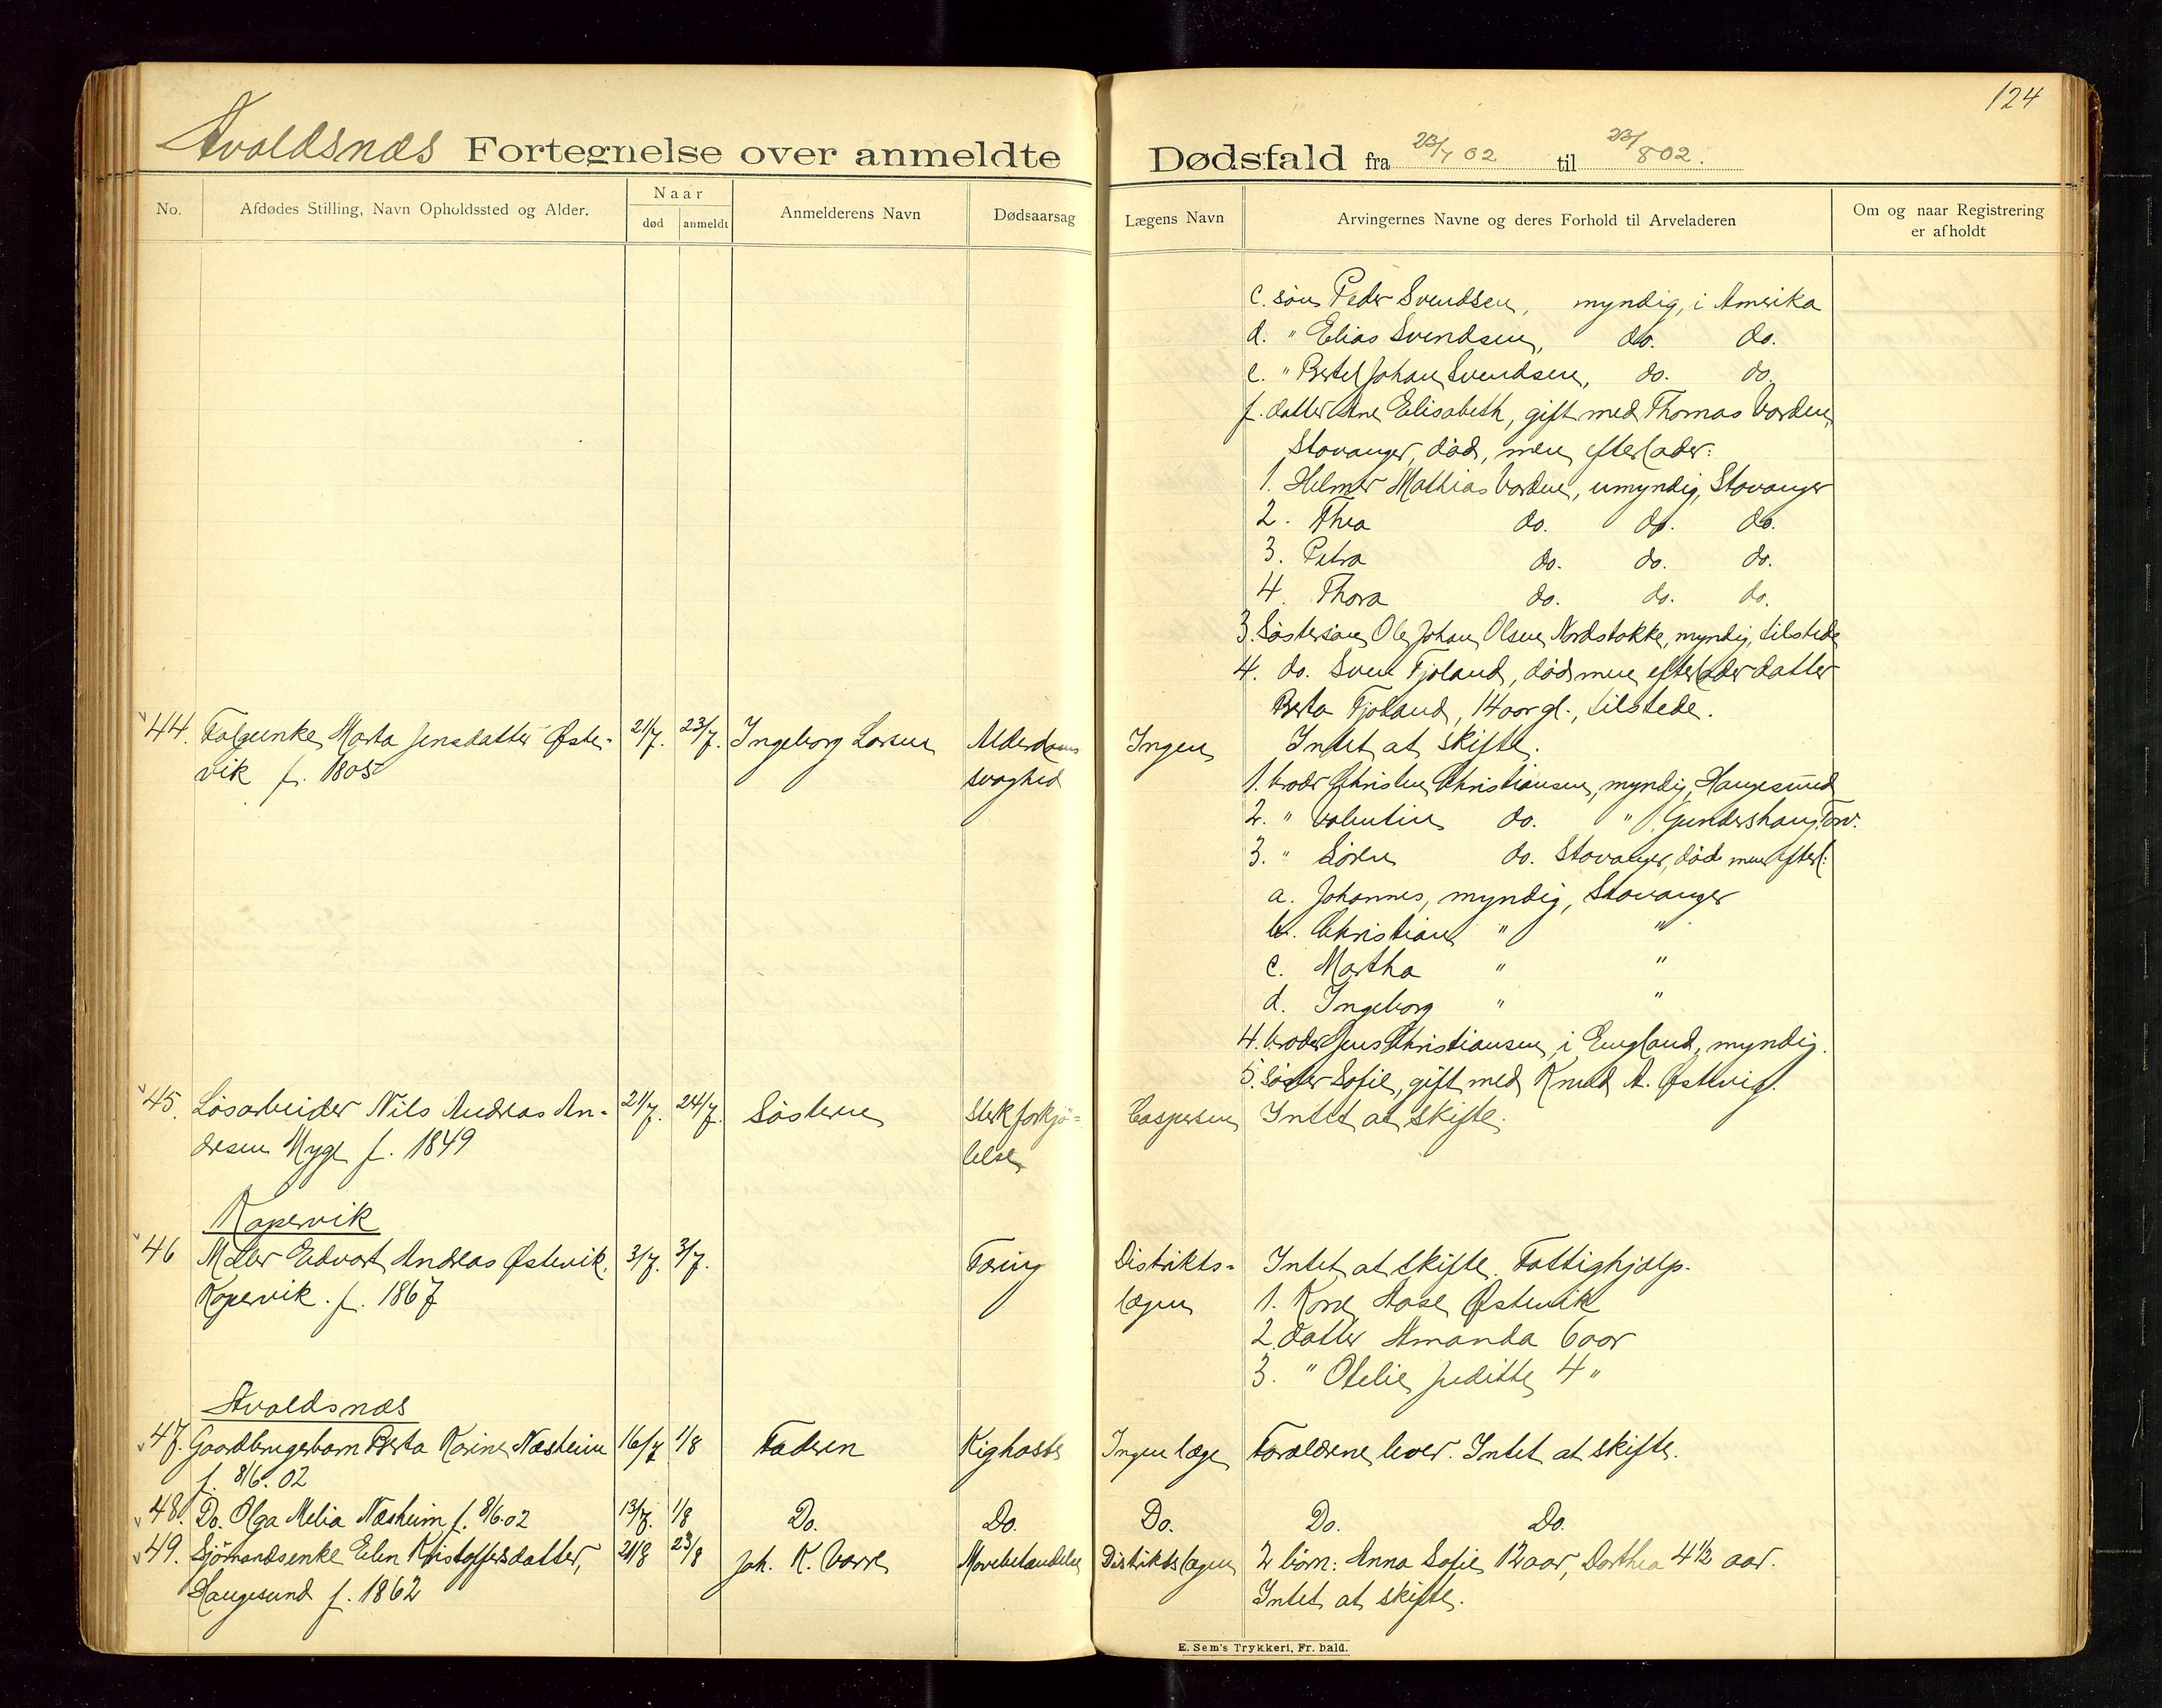 124
Avaldsnæs Fortegnelse over anmeldte Dødsfald fra 23/7 02 til 23/8 02.
No.
Afdødes Stilling, Navn Opholdssted og Alder.
Naar
død
anmeldt
Anmelderens Navn
Dødsaarsag
Lægens Navn
Arvingernes Navne og deres Forhold til Arveladeren
Om og naar Registrering
er afholdt
c. søn Peder Svendsen, myndig, i Amerika
d. " Elias Svendsen, do. do.
e. " Bertel Johan Svendsen, do. do.
f. datter Ane Elisabeth, gift med Thomas Varden,
Stavanger, død, men efterlader:
1. Helmer Mathias Varden, umyndig, Stavanger
2. Thea do. do. do.
3. Petra do. do. do.
4. Thora do. do. do.
3. Søstersøn Ole Johan Olsen Nordstokke, myndig, tilstede
4. do. Sven Fjoland, død men efterlader datter
Berta Fjoland, 14 aar gl., tilstede.
44. Folgeenke Marta Jensdatter Øste- 21/7. 23/7. Ingeborg Larsen Alderdoms Ingen Intet at skifte.
vik f. 1805 svaghed
1. broder Christen Christiansen, myndig, Haugesund
2. " Valentin do. " Gundershaug, Torv.
3. " Søren do. Stavanger, død men efterl:
a. Johannes, myndig, Stavanger
b. Christian " "
c. Martha " "
d. Ingeborg " "
4. broder Jens Christiansen, i England, myndig.
5. søster Sofie, gift med Knud A. Østevig.
45. Løsarbeider Nils Andreas An- 21/7. 24/7. Søsteren Sterk forkjø- Caspersen Intet at skifte.
dersen Myge f. 1849 lelse
Kopervik
46 Maler Edvart Andreas Østevik, 3/7. 3/7. Tæring Distrikts- Intet at skifte. Fattighjælp.
Kopervik. f. 1867 lægen 1. Kone Aase Østevik
2. datter Amanda 6 aar
3. " Otelie Juditte 4 "
Avaldsnæs
47. Gaardbrugerbarn Berta Karine Næsheim 16/7 1/8 Faderen Kighoste Ingen læge Forældrene lever. Intet at skifte.
f. 8/6. 02
48. Do. Olga Melia Næsheim f. 8/6.02 13/7. 1/8 Do. Do. Do. Do. Do.
49. Sjømandsenke Elen Kristoffersdatter, 21/8 23/8 Joh. K. Varre Distriktslægen 2 børn: Anna Sofie 12 aar, Dorthea 4 1/2 aar.
Haugesund f. 1862 Intet at skifte.
E. Sem's Trykkeri, Fr. hald.